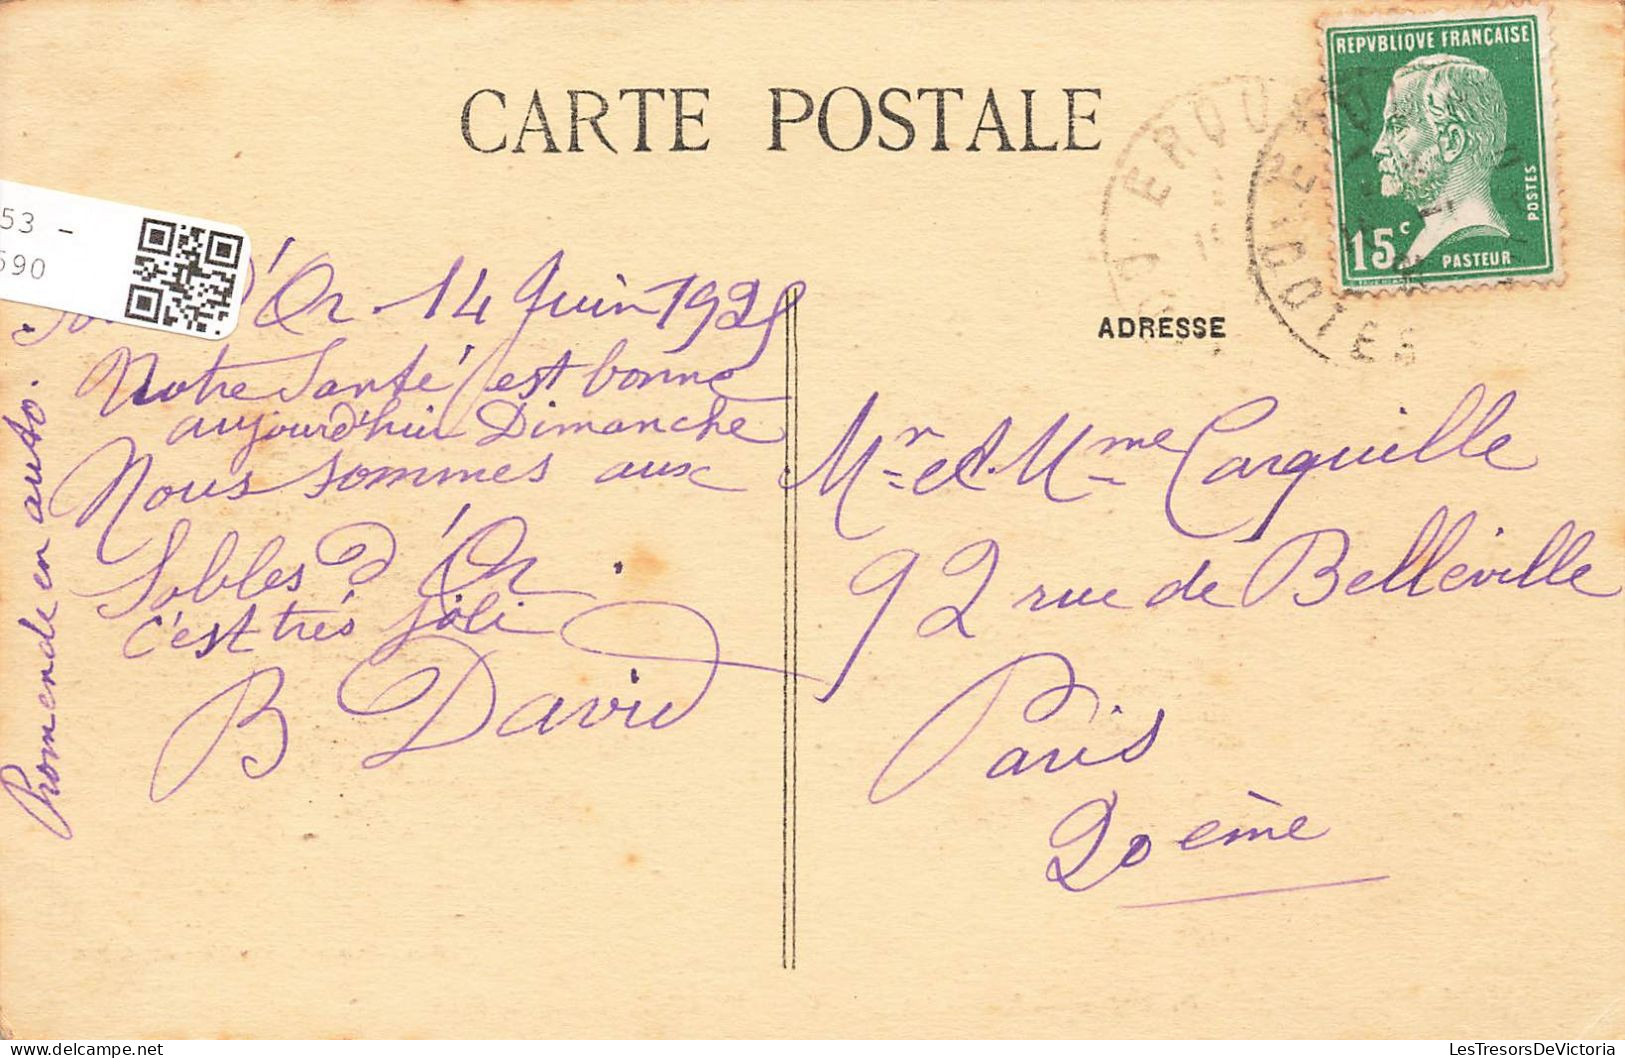 CARTE POSTALE
REPVBLIQVE FRANÇAISE
POSTES
15 c
PASTEUR
53 -
590
d'Or 14 Juin 1925
Notre Santé est bonne
aujourd'hui Dimanche
Nous sommes aux
Sables d'Or.
c'est très joli
B David
Promenade en auto.
ADRESSE
Mr et Mme Carquille
92 rue de Belleville
Paris
20 ème
LesTresorsDeVictoria